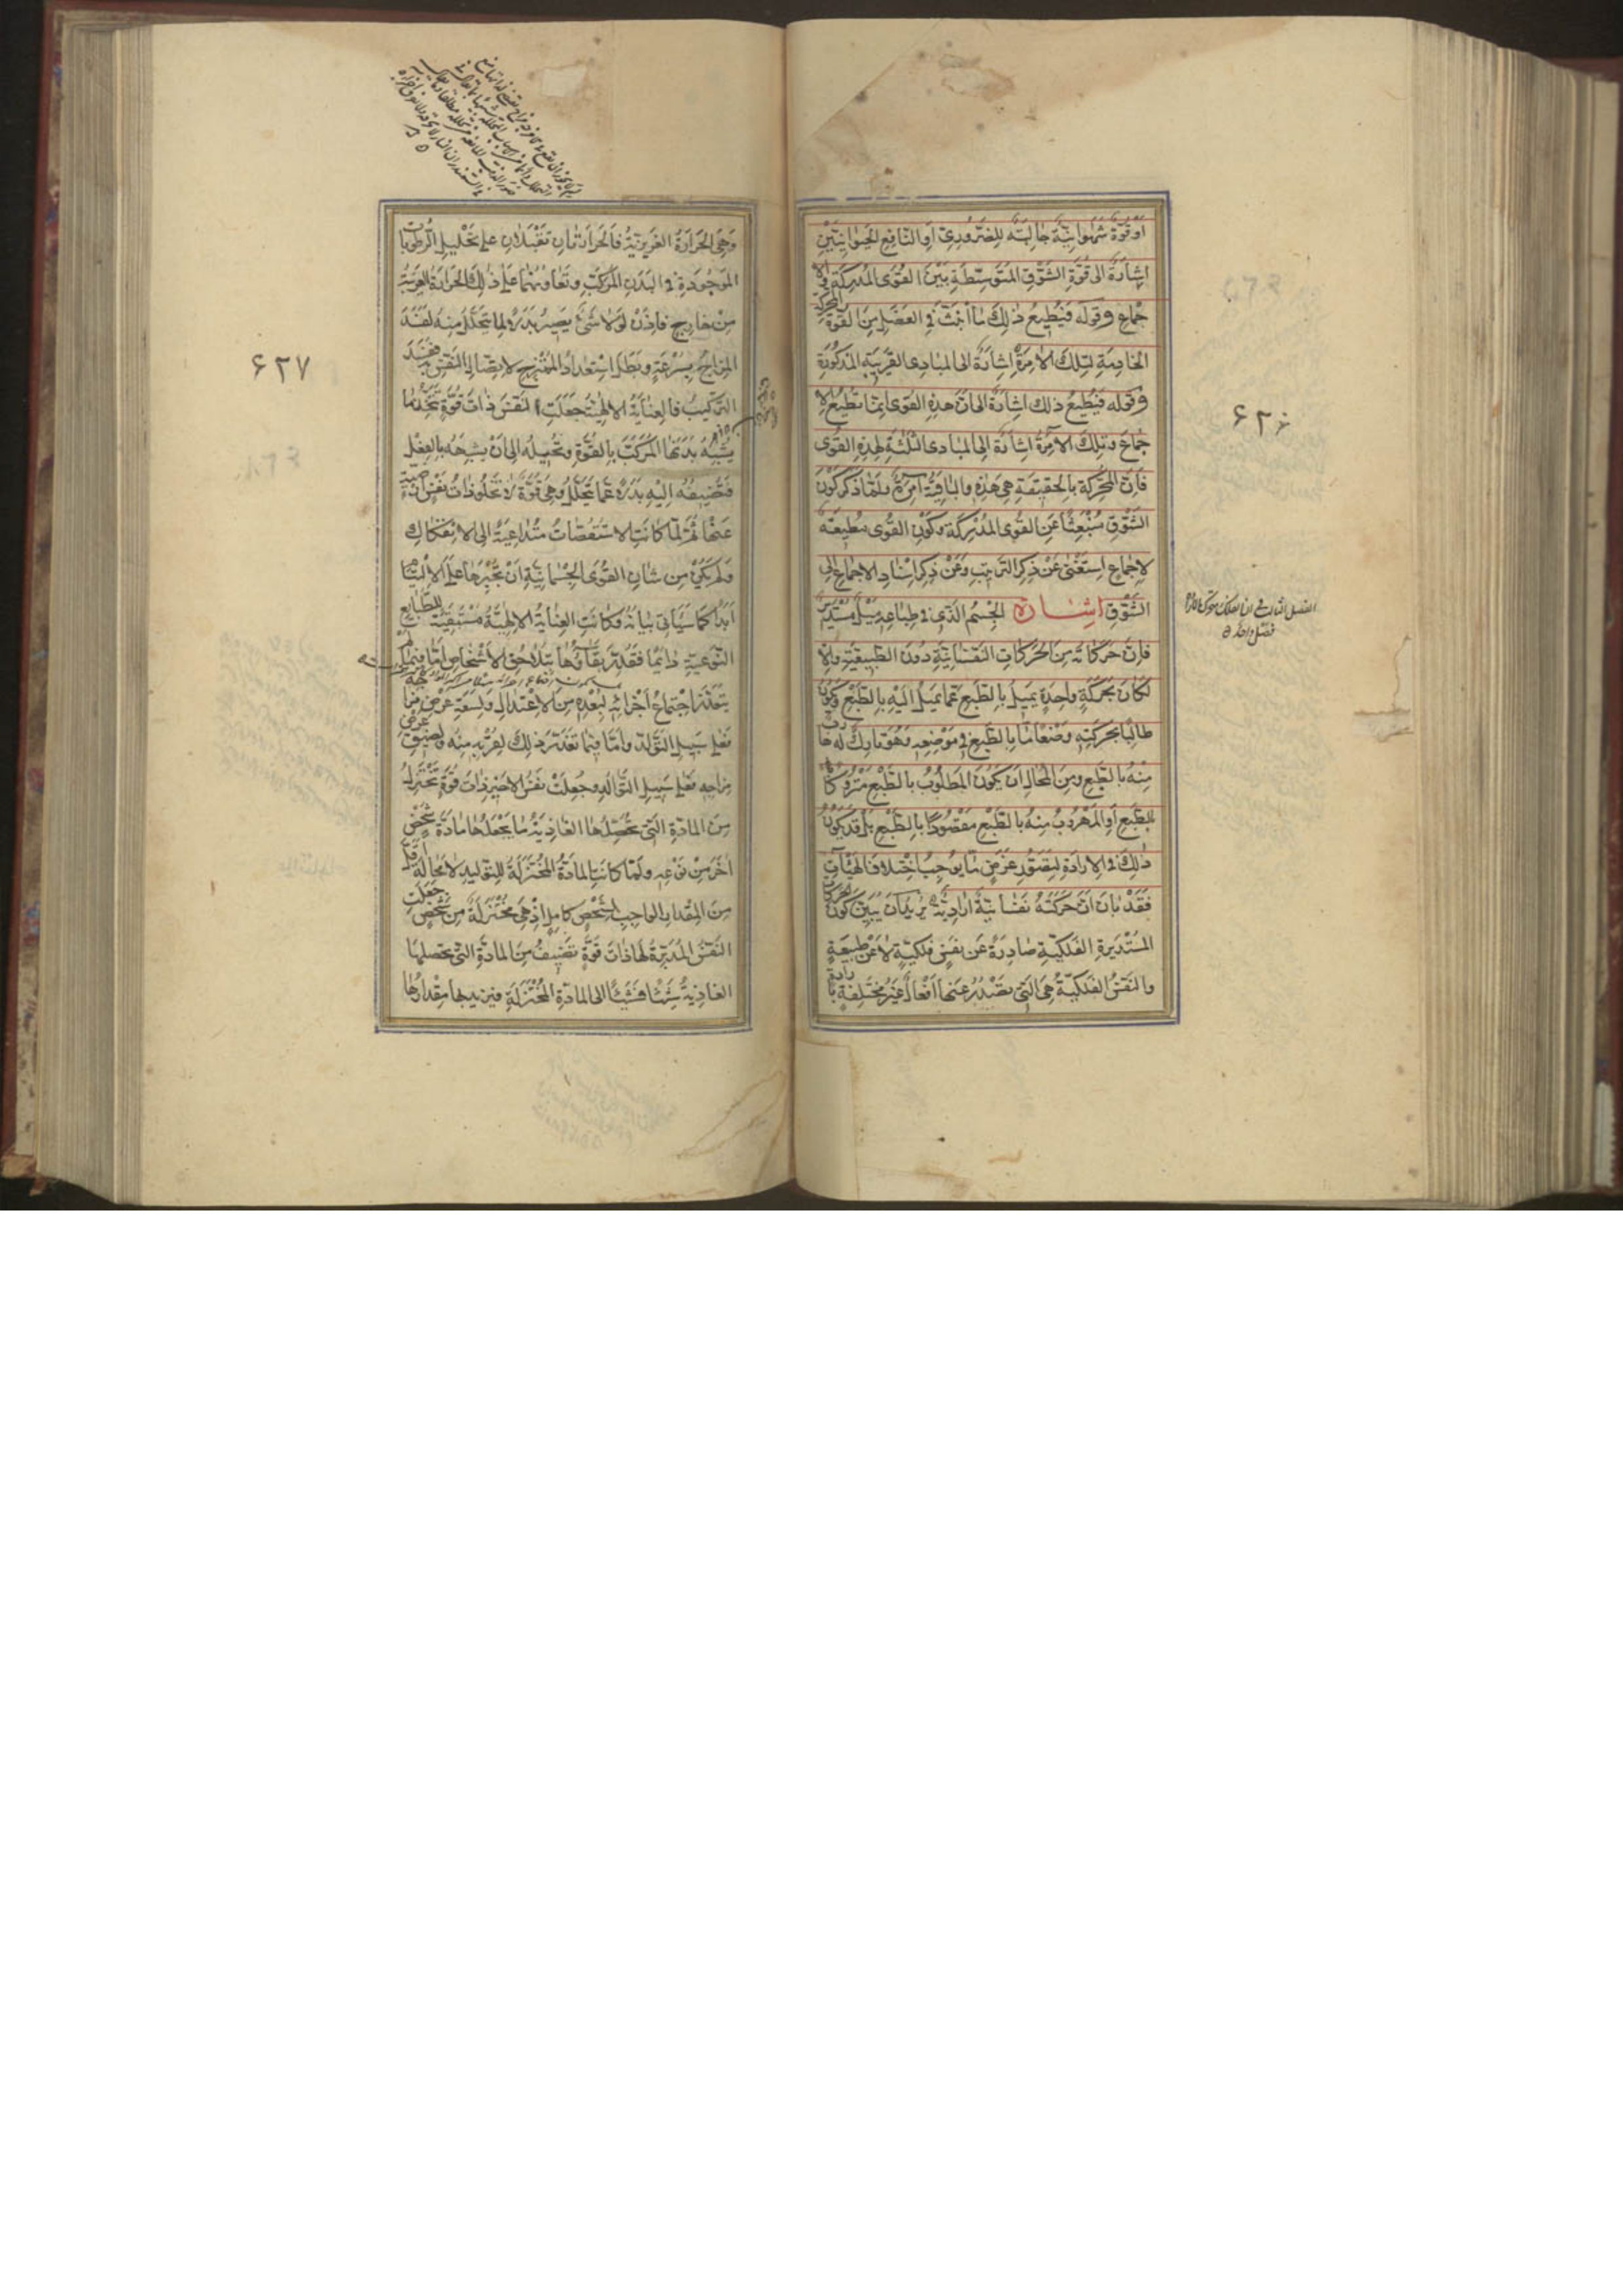 اوقوة شهوانية جالبة للضروري او النافع الحيوانيين
اشارة الى قوة الشوق المتوسطة بين القوى المدركة والا
جماع وقوله فيطيع ذلك ما انبث في العضل من القوة المحركة
الخادمة لتلك الامرة اشارة الى المبادى القريبة المذكورة
وقوله فيطيع ذلك اشارة الى ان هذه القوى انما تطيع الا
جماع وبتلك الآمرة اشارة الى المبادى الثلثة لهذه القوى
فان المحركة بالحقيقة هى هذه والباقية آمرة ولما ذكر كون
الشوق منبعثا عن القوى المدركة وكون القوى مطيعة
لاجماع استغنى عن ذكر الترتيب وعن ذكر اسناد الاجماع الى
الشوق اشارة الجسم الذى في طباعه ميل مستدير
فان حركاته من الحركات النفسانية دون الطبيعية والا
لكان بحركة واحدة يميل بالطبع عما يميل اليه بالطبع ويكون
طالبا بحركته وضعا ما بالطبع في موضعه وهو تارك له هارب
منه بالطبع ومن المحال ان يكون المطلوب بالطبع متروكا
بالطبع او المهروب منه بالطبع مقصودا بالطبع بل قد يكون
ذلك في الارادة لتصور غرض ما يوجب اختلاف الهيأت
فقد بان ان حركته نفسانية ارادية يريد ان يبين كون الحركات
المستديرة الفلكية صادرة عن نفس فلكية لا عن طبيعة
والنفس الفلكية هى التى تصدر عنها افعال غير مختلفة بارادة
۶۲۶
الفصل الثالث في
فصل واحد
وهى الحرارة الغريزية فالحرارتان تقبلان على تحليل الرطوبات
الموجودة في البدن المركب وتعاونهما على ذلك الحرارة الغريبة
من خارج فاذن لولا شئ يصير بدلا لما يتحلل منه لفسد
المزاج بسرعة وبطل استعداد الممتزج لاتصال النفس به ففسد
التركيب فالعناية الالهية جعلت النفس ذات قوة تجذب ما
يشبه بدنها المركب بالقوة وتحيله الى ان يشبهه بالفعل
فتضيفه اليه بدلا عما يتحلل وهى قوة لا تخلو ذات نفس ارضية
عنها ثم لما كانت الاستقصات متداعية الى الانفكاك
ولم يكن من شان القوى الجسمانية ان تجبرها على الالتيام
ابدا كما سياتى بيانه وكانت العناية الالهية مستبقية للطبايع
النوعية دائما فقدر بقاؤها بتلاحق الاشخاص اما فيما لم
يتعذر اجتماع اجزائه لبعده من الاعتدال ولسعة عرض مزاجه
فعلى سبيل التولد واما فيما تعذر ذلك لقربه منه ولضيق عرض
مزاجه فعلى سبيل التوالد وجعلت نفس الاخير ذات قوة تختزل
من المادة التى تحصلها الغاذية ما يجعلها مادة شخص
اخر من نوعه ولما كانت المادة المختزلة للتوليد لا محالة اقل
من المقدار الواجب لشخص كامل اذ هى مختزلة من شخص جعلت
النفس المدبرة لها ذات قوة تضيف من المادة التى تحصلها
الغاذية شيئا فشيئا الى المادة المختزلة فيزيد بها مقدارها
۶۲۷